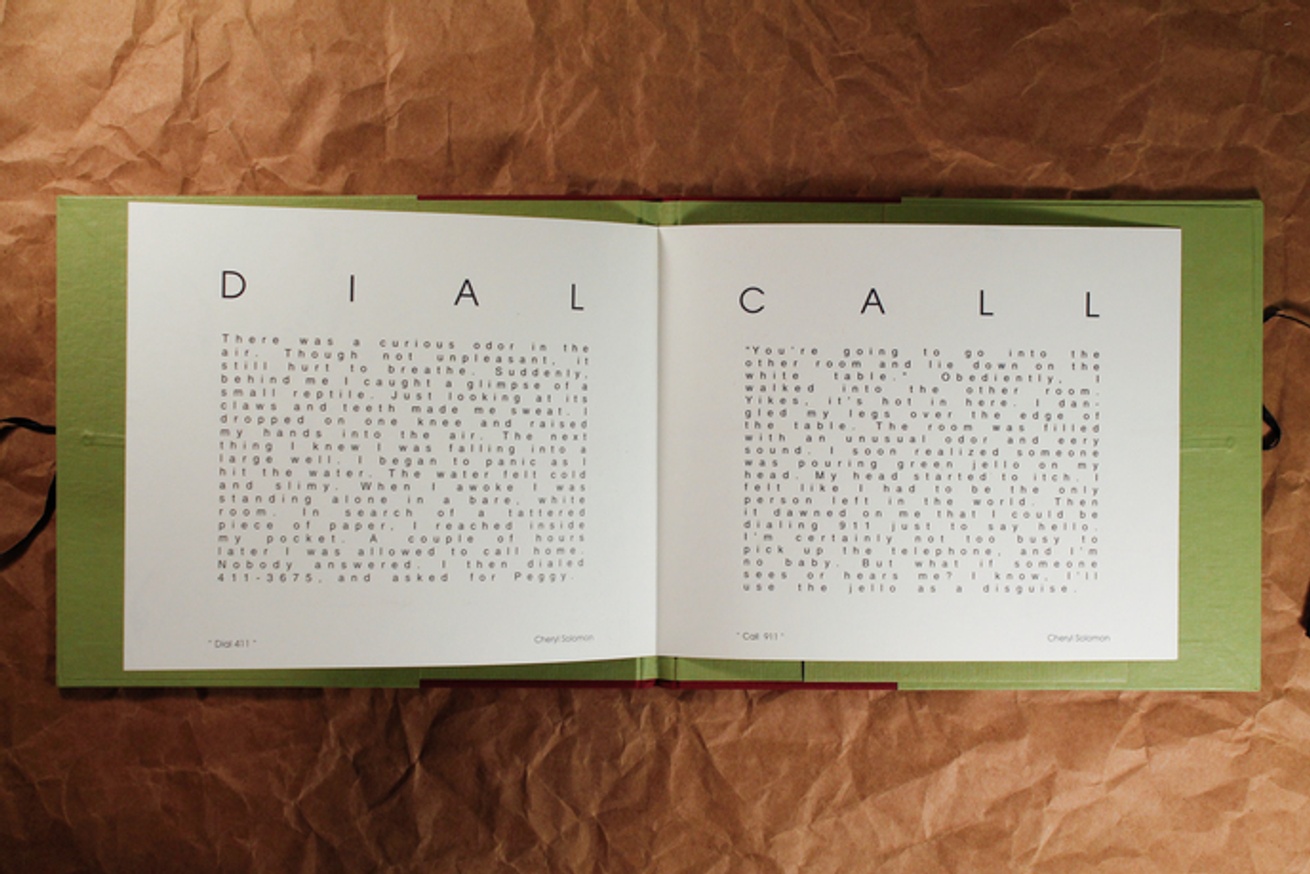 DIAL
There was a curious odor in the
air. Though not unpleasant, it
still hurt to breathe. Suddenly,
behind me I caught a glimpse of a
small reptile. Just looking at its
claws and teeth made me sweat. I
dropped on one knee and raised
my hands into the air. The next
thing I knew I was falling into a
large well. I began to panic as I
hit the water. The water felt cold
and slimy. When I awoke I was
standing alone in a bare, white
room. In search of a tattered
piece of paper, I reached inside
my pocket. A couple of hours
later I was allowed to call home.
Nobody answered. I then dialed
411-3675, and asked for Peggy.
"Dial 411"
Cheryl Solomon
CALL
"You're going to go into the
other room and lie down on the
white table." Obediently, I
walked into the other room.
Yikes, it's hot in here. I dan-
gled my legs over the edge of
the table. The room was filled
with an unusual odor and eery
sound. I soon realized someone
was pouring green jello on my
head. My head started to itch. I
felt like I had to be the only
person left in the world. Then
it dawned on me that I could be
dialing 911 just to say hello.
I'm certainly not too busy to
pick up the telephone, and I'm
no baby. But what if someone
sees or hears me? I know, I'll
use the jello as a disguise.
"Call 911"
Cheryl Solomon